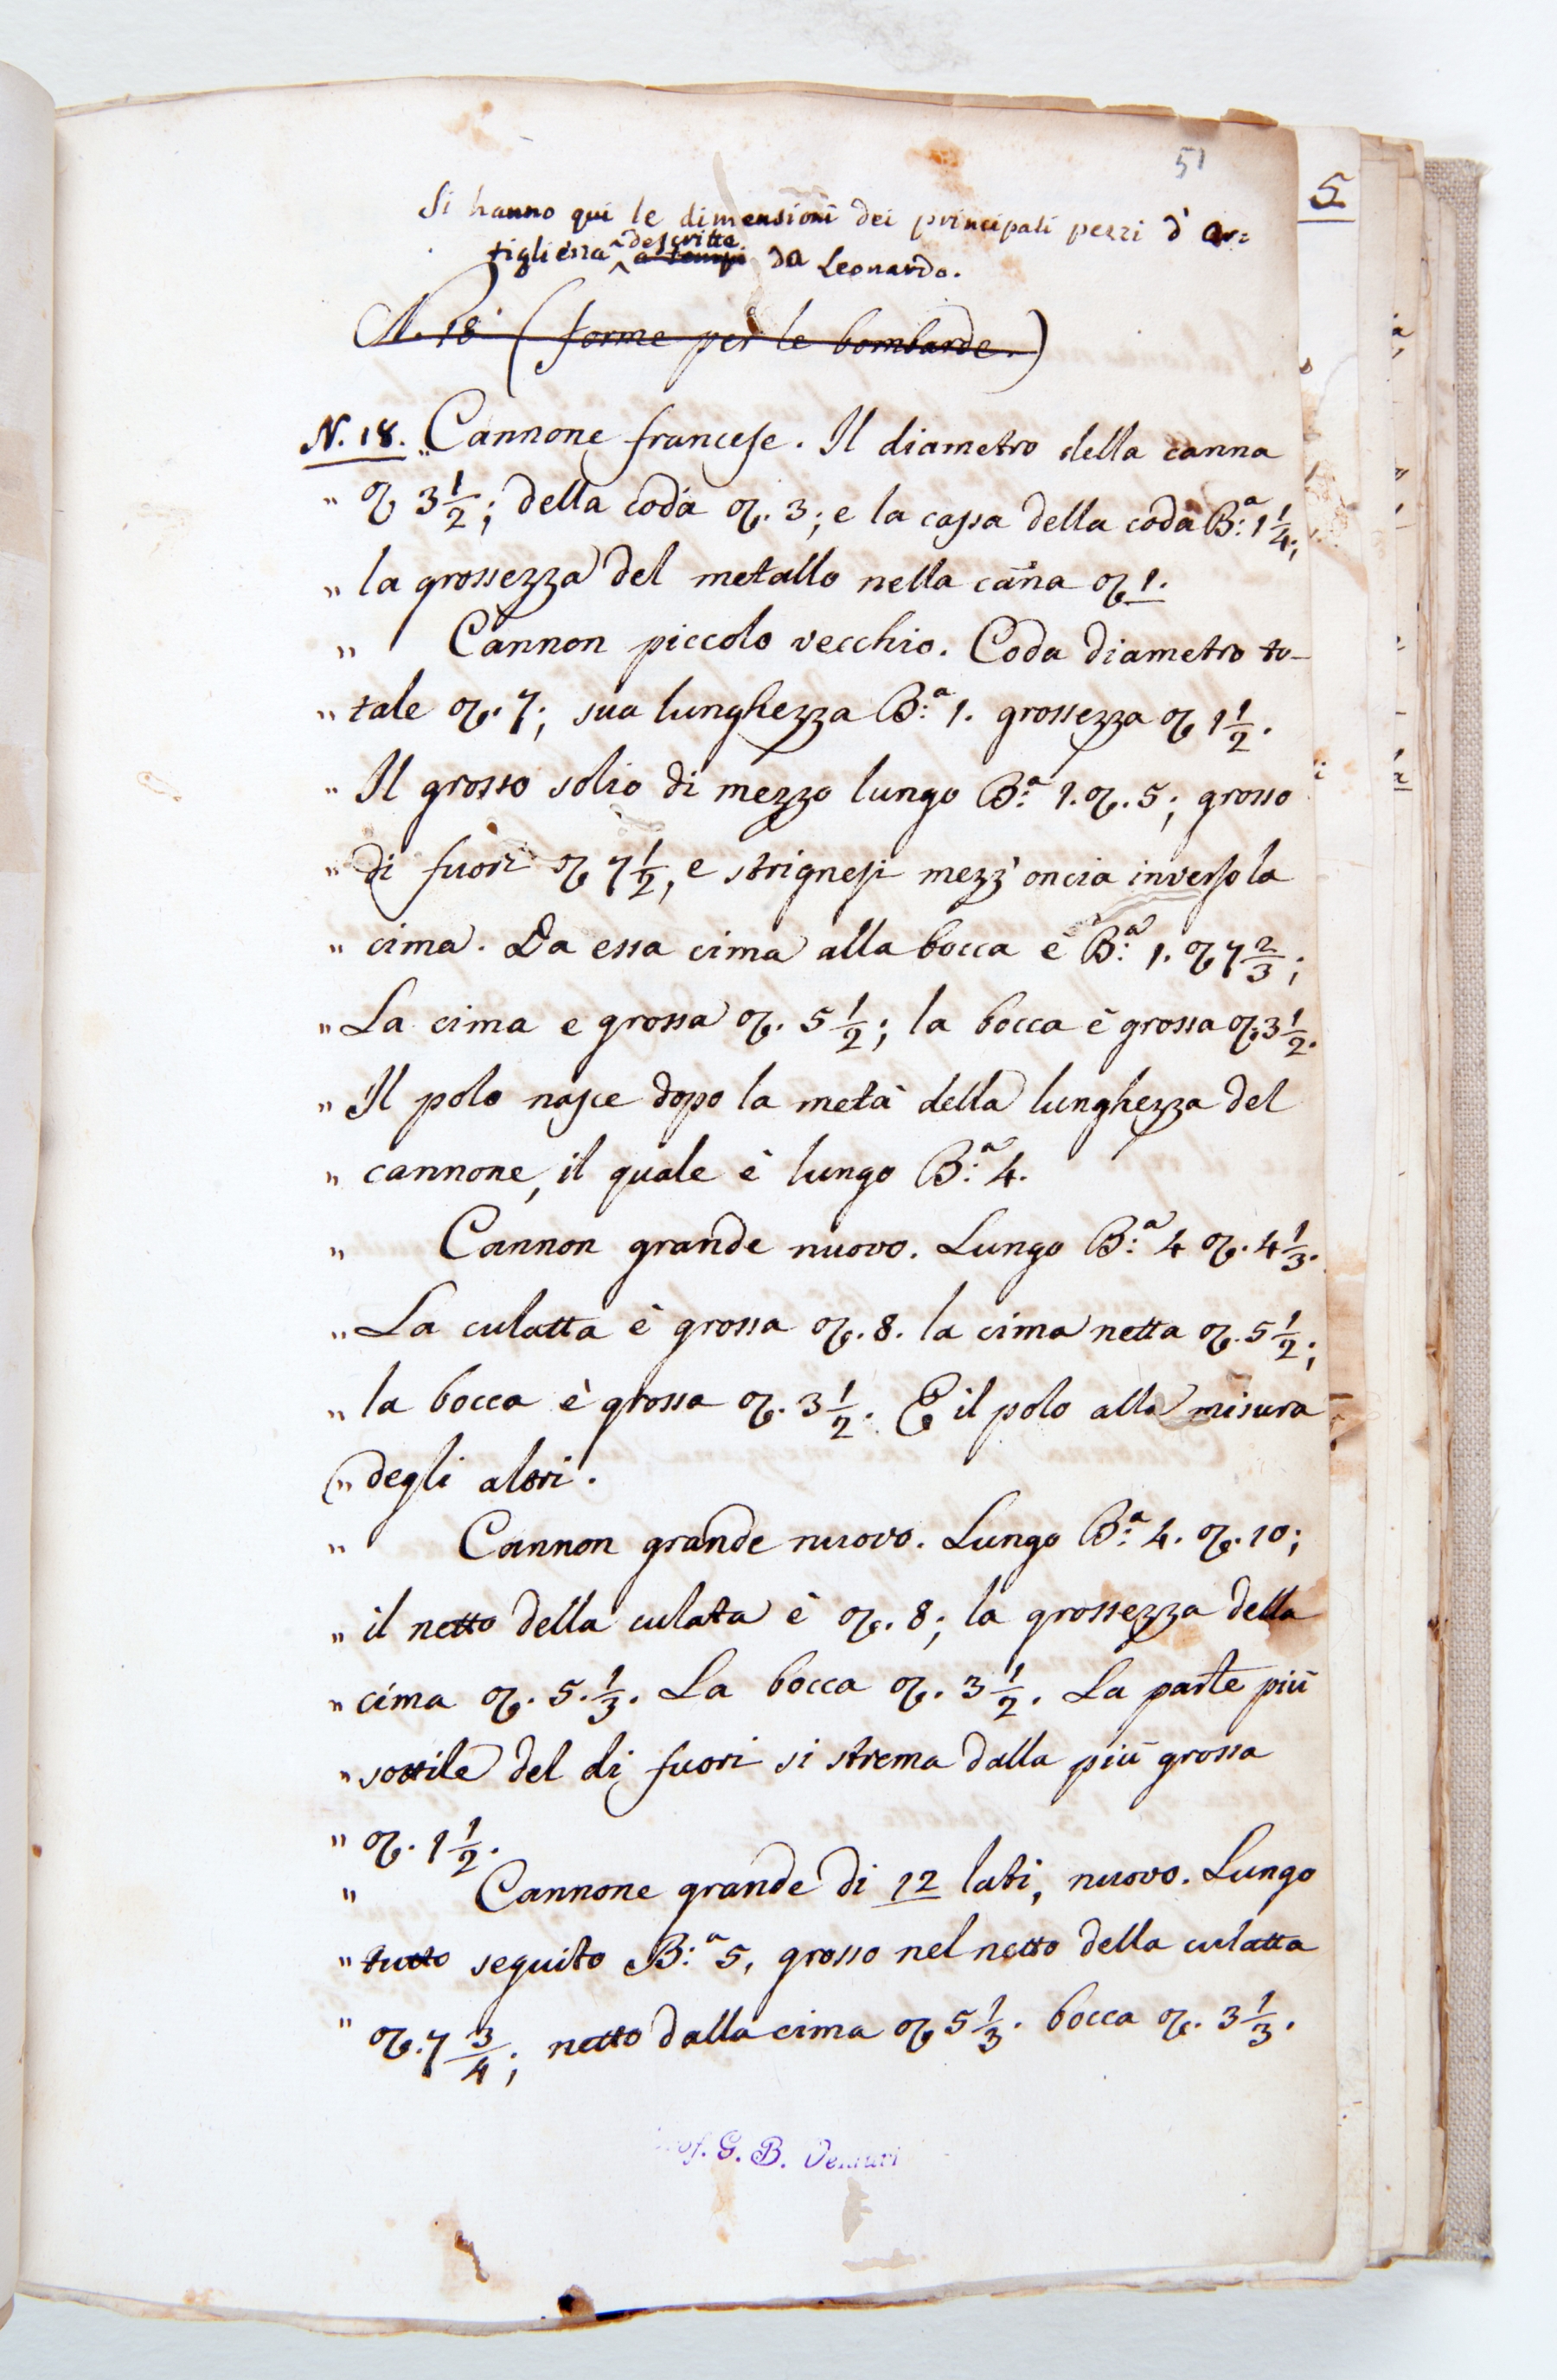 51
5
Si hanno qui le dimensioni dei principali pezzi d'ar=
tiglieria descritte a tempi da Leonardo.
N. 18 (forme per le bombarde.)
N. 18. „ Cannone francese. Il diametro della canna
„ oz 3 1/2; della coda oz. 3; e la cassa della coda B:ª 1 1/4;
„ la grossezza del metallo nella cãna oz 1.
„ Cannon piccolo vecchio. Coda diametro to-
„ tale oz. 7; sua lunghezza B:ª 1. grossezza oz 1 1/2.
„ Il grosso solio di mezzo lungo B:ª 1. oz. 5; grosso
„ di fuori oz 7 1/2, e strignesi mezz'oncia inverso la
„ cima. Da essa cima alla bocca è B:ª 1. oz 7 2/3;
„ La cima e grossa oz. 5 1/2; la bocca è grossa oz. 3 1/2.
„ Il polo nasce dopo la metà della lunghezza del
„ cannone, il quale è lungo B:ª 4.
„ Cannon grande nuovo. Lungo B:ª 4 oz. 4 1/3.
„ La culatta è grossa oz. 8. la cima netta oz. 5 1/2;
„ la bocca è grossa oz. 3 1/2. E il polo alla misura
„ degli altri.
„ Cannon grande nuovo. Lungo B:ª 4. oz. 10;
„ il netto della culata è oz. 8; la grossezza della
„ cima oz. 5. 1/3. La bocca oz. 3 1/2. La parte più
„ sottile del di fuori si strema dalla più grossa
„ oz. 1 1/2.
„ Cannone grande di 12 lati, nuovo. Lungo
„ tutto seguito B:ª 5, grosso nel netto della culatta
„ oz. 7 3/4; netto dalla cima oz 5 1/3. bocca oz. 3 1/3.
Prof. G. B. Venturi